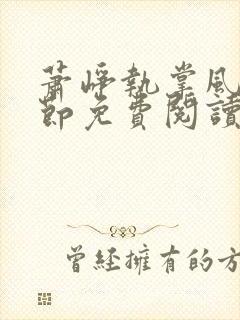 蕭崢執掌風
節免費閱讀
曾經擁有的方